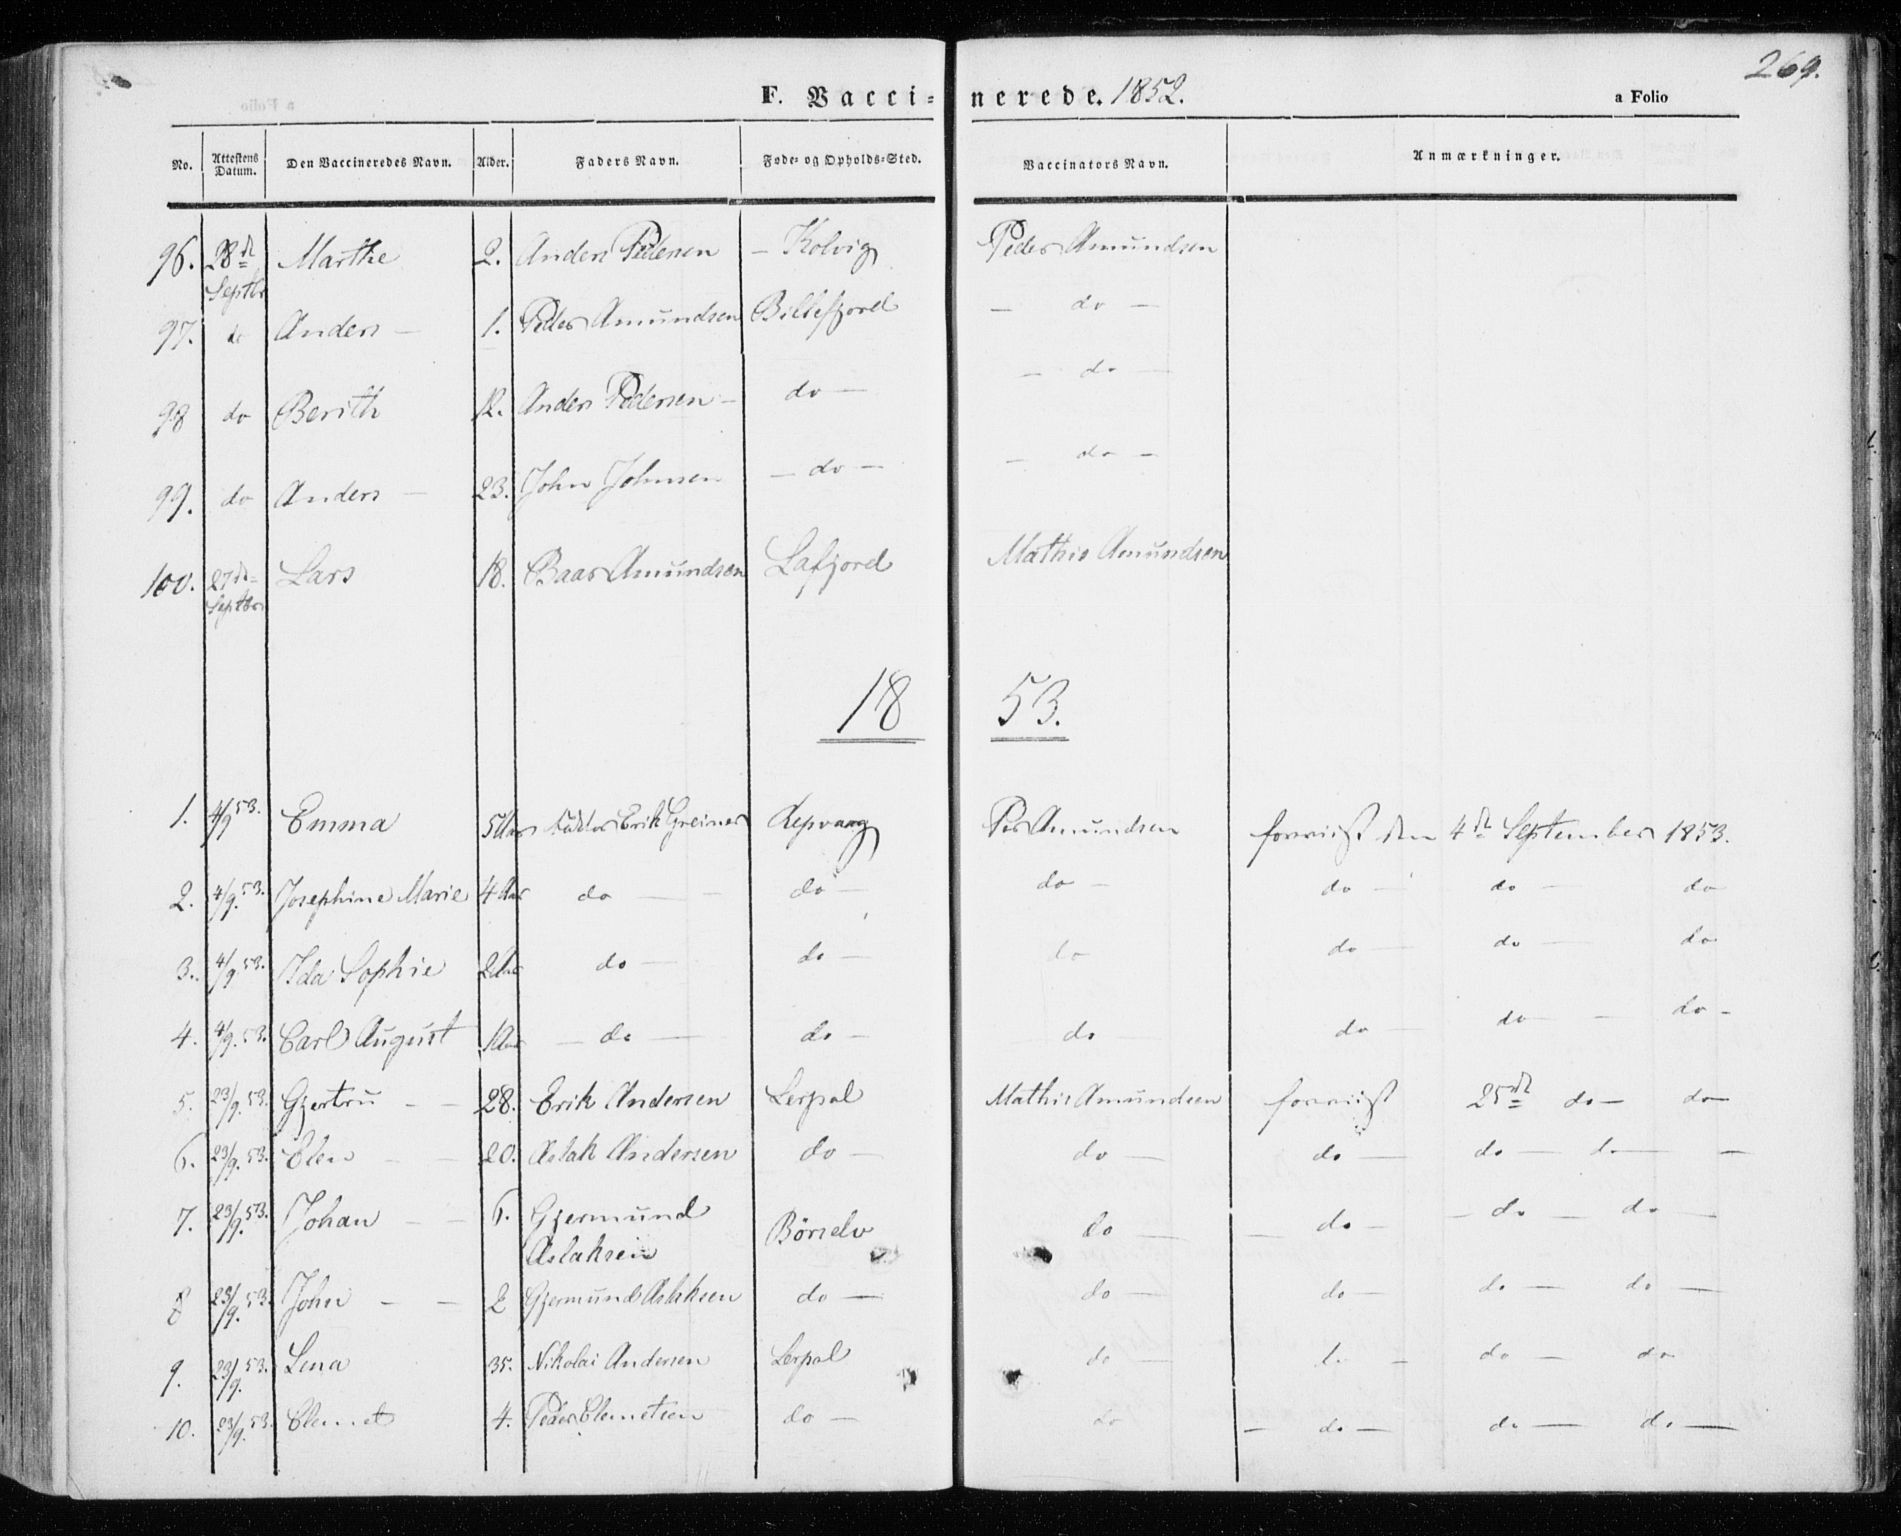 269.
F. Vacci= nerede. 1852. a Folio
No. Attestens Datum. Den Vaccineredes Navn. Alder. Faders Navn. Føde- og Opholds-Sted. Vaccinators Navn. Anmærkninger.
96. 28de Septbr Marthe 2. Anders Pedersen - Kolvig Peder Amundsen
97. do Anders - 1. Peder Amundsen Billefjord - do -
98 do Berith 12. Anders Pedersen - do - - do -
99. do Anders - 23. John Johnsen - do - - do -
100. 27de Septbr Lars 18. Baar Amundsen Lafjord Mathis Amundsen
18 53.
1. 4/9 53. Emma 5 Aar Erik Greiner Repvaag Per Amundsen forviist den 4de September 1853.
2. 4/9. 53. Josephine Marie 4 Aar do - do - do - do - do - do
3. 4/9 53. Ida Sophie 2 Aar do - do - do do - do - do
4. 4/9. 53. Carl August 1 Aar - do - do - do - do - do - do -
5. 23/9. 53. Gjertru - - 28. Erik Andersen Lerpol Mathis Amundsen forviist 25de do - do
6. 23/9. 53. Elen - - 20. Aslak Andersen do - do - do - do - do -
7. 23/9. 53. Johan - - 6. Gjermund Aslaksen Børselv do - - do - - do - do -
8 23/9. 53. John - - 2 Gjermund Aslaksen do - do - do - do - do -
9. 23/9. 53. Lena 35. Nikolai Andersen Lerpol do - do - do - do
10. 23/9. 53. Clemet 4. Peder Clemetsen do - do - do - do - do -